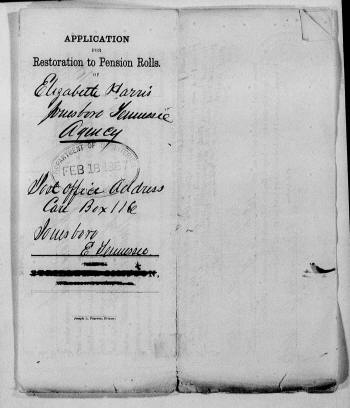 APPLICATION
FOR
Restoration to Pension Rolls.
OF
Elizabeth Harris
Jonesboro Tennessee
Agency
DEPARTMENT OF
FEB 18 1867
Post office Address
Care Box 116
Jonesboro
E. Tennessee
Joseph L. Pearson, Printer.